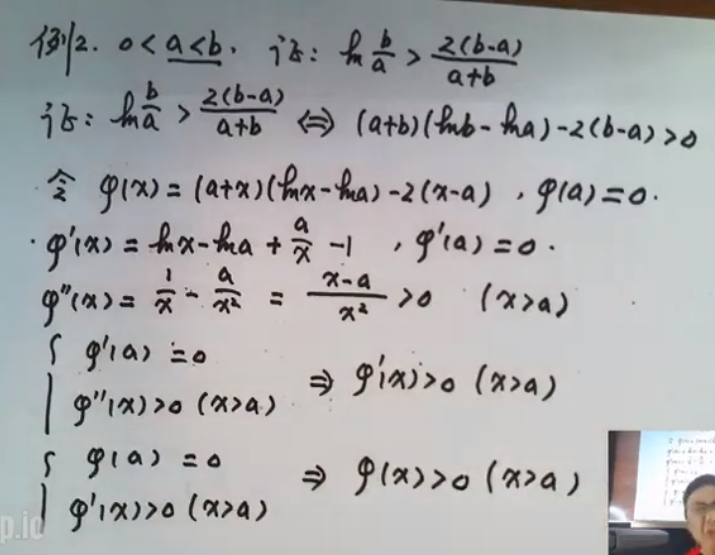 例2. 0<a<b. 证: ln b/a > 2(b-a)/(a+b)
证: ln b/a > 2(b-a)/(a+b) ⇔ (a+b)(lnb-lna)-2(b-a)>0
令 φ(x)=(a+x)(lnx-lna)-2(x-a), φ(a)=0.
φ'(x)=lnx-lna+a/x-1, φ'(a)=0.
φ''(x)=1/x-a/x²=(x-a)/x²>0 (x>a)
{ φ'(a)=0
φ''(x)>0 (x>a) ⇒ φ'(x)>0 (x>a)
{ φ(a)=0
φ'(x)>0 (x>a) ⇒ φ(x)>0 (x>a)
p.io